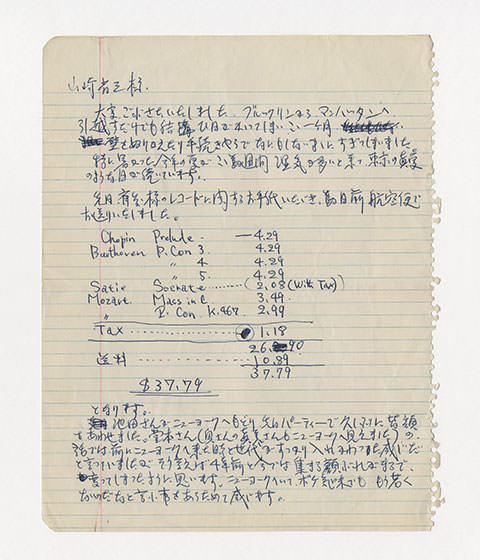 山崎省三様.
大変ごぶさたいたしました. ブルックリンから マンハッタンへ
引越すだけでも結構 ひまがかかってしまい この一ヶ月
壁を切りぬいたり手続きやらで なにもしないまますぎてしまいました.
特に寒かった今年の夏がこの数週間 湿気が多いと来て 東京の真夏
のような日が続いています.
先日 様のレコードに関するお手紙いただき, 数日前 航空便で
お送りいたしました。
Chopin Prelude. — 4.29
Beethoven P.Con 3. 4.29
〃 4 4.29
〃 5. 4.29
Satie Socrate ........ (2.08 (With Tax))
Mozart. Mass in C. 3.49
〃 P. Con. K.467. 2.99
Tax ---------- 1.18
26.90
送料 ---------- 10.89
37.79
$37.79
となります。
池田さんがニューヨークへもどり, 先日パーティーで久しぶりに皆顔
をあわせました. さん (奥さんもニューヨークへ見えました) の
話では前にニューヨークへ来た時と世代がすっかり入れかわった感じだ
と言っていましたが そう言えば4年前と今では 集まる顔ぶれがまるで,
変ってしまったように思います. ニューヨークにいて, ボケ気味でも もう若く
ないのだなと 言う事をあらためて感じます。